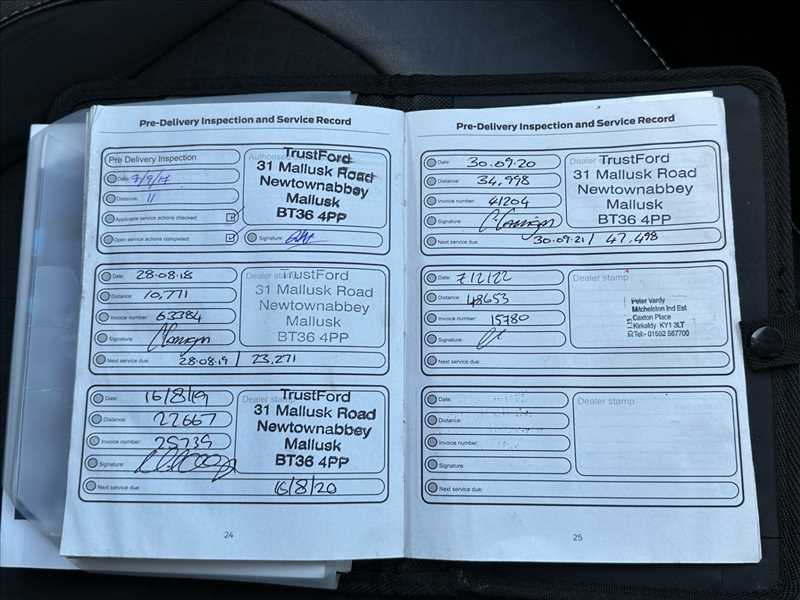 Pre-Delivery Inspection and Service Record
Pre Delivery Inspection
Date: 7/9/17
Distance: 11
Applicable service actions checked:
Open service actions completed:
TrustFord
31 Mallusk Road
Newtownabbey
Mallusk
BT36 4PP
Signature:
Date: 28.08.18
Distance: 10,771
Invoice number: 63384
Signature:
Dealer stamp
TrustFord
31 Mallusk Road
Newtownabbey
Mallusk
BT36 4PP
Next service due: 28.08.19 / 23,271
Date: 16/8/19
Distance: 22667
Invoice number: 25735
Signature:
Dealer stamp
TrustFord
31 Mallusk Road
Newtownabbey
Mallusk
BT36 4PP
Next service due: 16/8/20
24
Pre-Delivery Inspection and Service Record
Date: 30.09.20
Distance: 34,998
Invoice number: 41204
Signature:
Dealer stamp
TrustFord
31 Mallusk Road
Newtownabbey
Mallusk
BT36 4PP
Next service due: 30.09.21 / 47,498
Date: 7/2/22
Distance: 48653
Invoice number: 15780
Signature:
Next service due:
Dealer stamp
Peter Vardy
Mitchelston Ind Est
Caxton Place
Kirkaldy KY1 3LT
Tel:- 01592 567700
Date:
Distance:
Invoice number:
Signature:
Next service due:
Dealer stamp
25